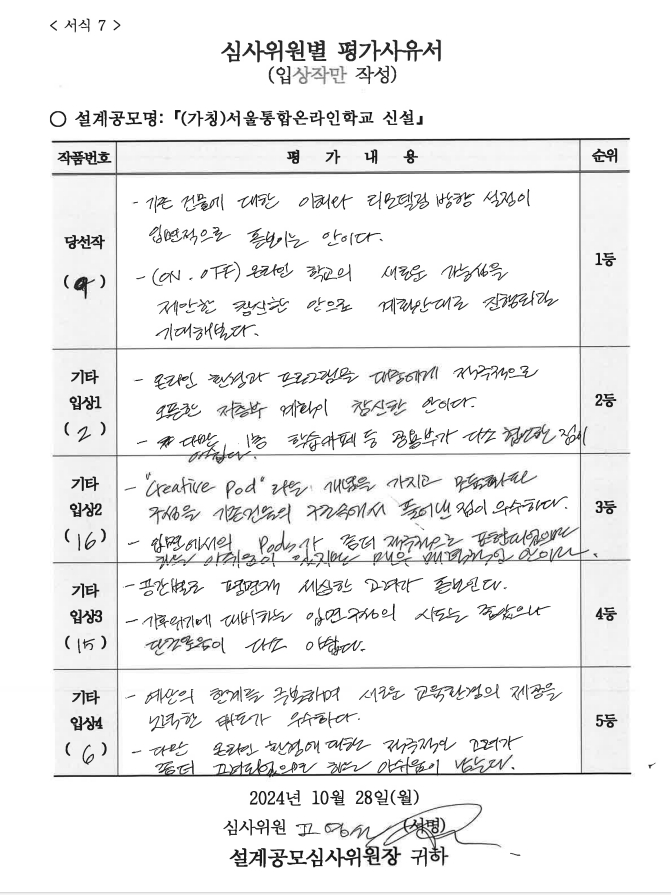 < 서식 7 >
심사위원별 평가사유서
(입상작만 작성)
○ 설계공모명: 『(가칭)서울통합온라인학교 신설』
작품번호 평 가 내 용 순위
당선작
(9)
- 기존 건물에 대한 이해와 리모델링 방향 설정이
입면적으로 돋보이는 안이다.
- (ON. OFF) 온라인 학교의 새로운 가능성을
제안한 참신한 안으로 계획안대로 진행되길
기대해본다.
1등
기타
입상1
(2)
- 온라인 환경과 프로그램을 대중에게 적극적으로
오픈한 저층부 계획이 참신한 안이다.
- 다만 1층 학습카페 등 공용부가 다소 협소한 점이
아쉽다.
2등
기타
입상2
(16)
- "Creative Pod" 라는 개념을 가지고 모듈화된
구성을 기존건물의 구조속에서 풀어낸 점이 우수하다.
- 입면에서의 Pods가 좀더 적극적으로 표현되었으면
하는 아쉬움이 있지만 매우 매력적인 안이다.
3등
기타
입상3
(15)
- 공간별로 평면계 세심한 고려가 돋보인다.
- 기후위기에 대비하는 입면구성의 시도는 좋았으나
단조로움이 다소 아쉽다.
4등
기타
입상4
(6)
- 예산의 한계를 극복하며 새로운 교육환경의 제공을
노력한 태도가 우수하다.
- 다만 온라인 환경에 대한 적극적인 고려가
좀더 고려되었으면 하는 아쉬움이 남는다.
5등
2024년 10월 28일(월)
심사위원 (서명)
설계공모심사위원장 귀하